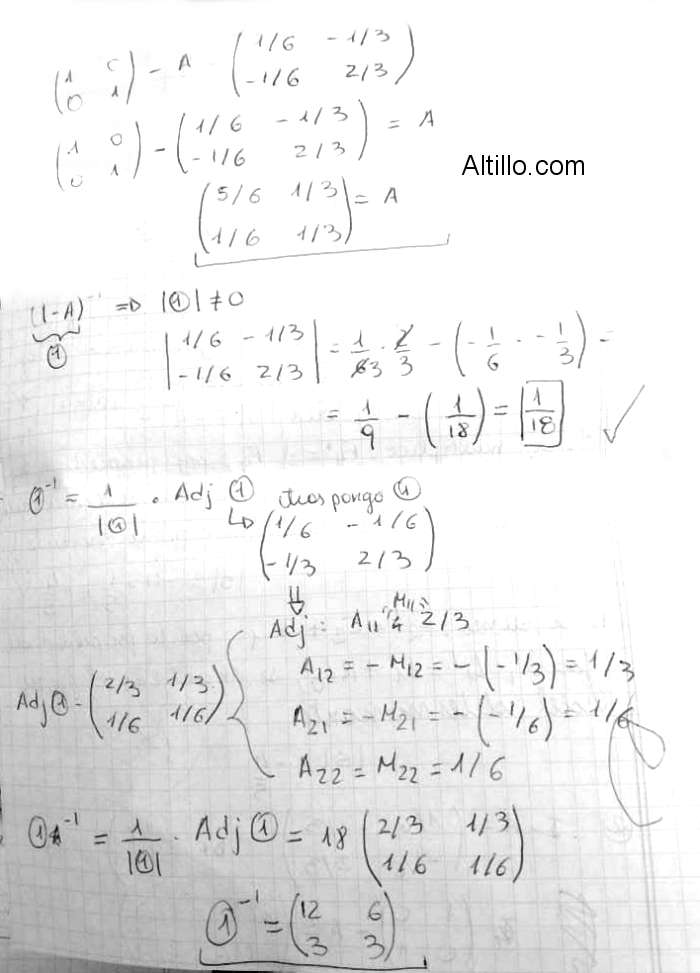 (1 0
0 1) - A (1/6 -1/3
-1/6 2/3)
(1 0
0 1) - (1/6 -1/3
-1/6 2/3) = A
Altillo.com
(5/6 1/3
1/6 1/3) = A
(I-A)⁻¹ => |①| ≠ 0
①
|1/6 -1/3
-1/6 2/3| = 1/63 · 2/3 - (-1/6 · -1/3) =
= 1/9 - (1/18) = 1/18 ✓
①⁻¹ = 1/|①| · Adj ① traspongo ①
↳ (1/6 -1/6
-1/3 2/3)
⇓
Adj: A11 = M11 = 2/3
A12 = -M12 = -(-1/3) = 1/3
Adj ① = (2/3 1/3
1/6 1/6)
A21 = -M21 = -(-1/6) = 1/6
A22 = M22 = 1/6
①⁻¹ = 1/|①| · Adj ① = 18 (2/3 1/3
1/6 1/6)
①⁻¹ = (12 6
3 3)